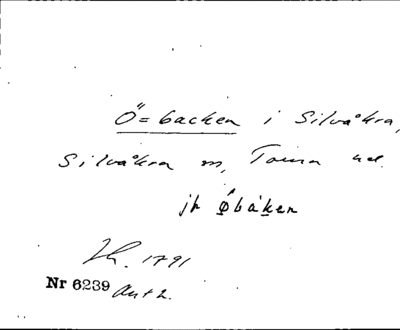 Ö=backen i Silvåkra,
Silvåkra sn, Torna hd.
øbåken
1791
Nr 6239